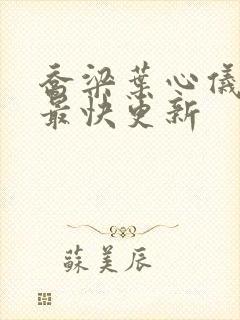 乔梁葉心儀
最快更新
蘇美辰